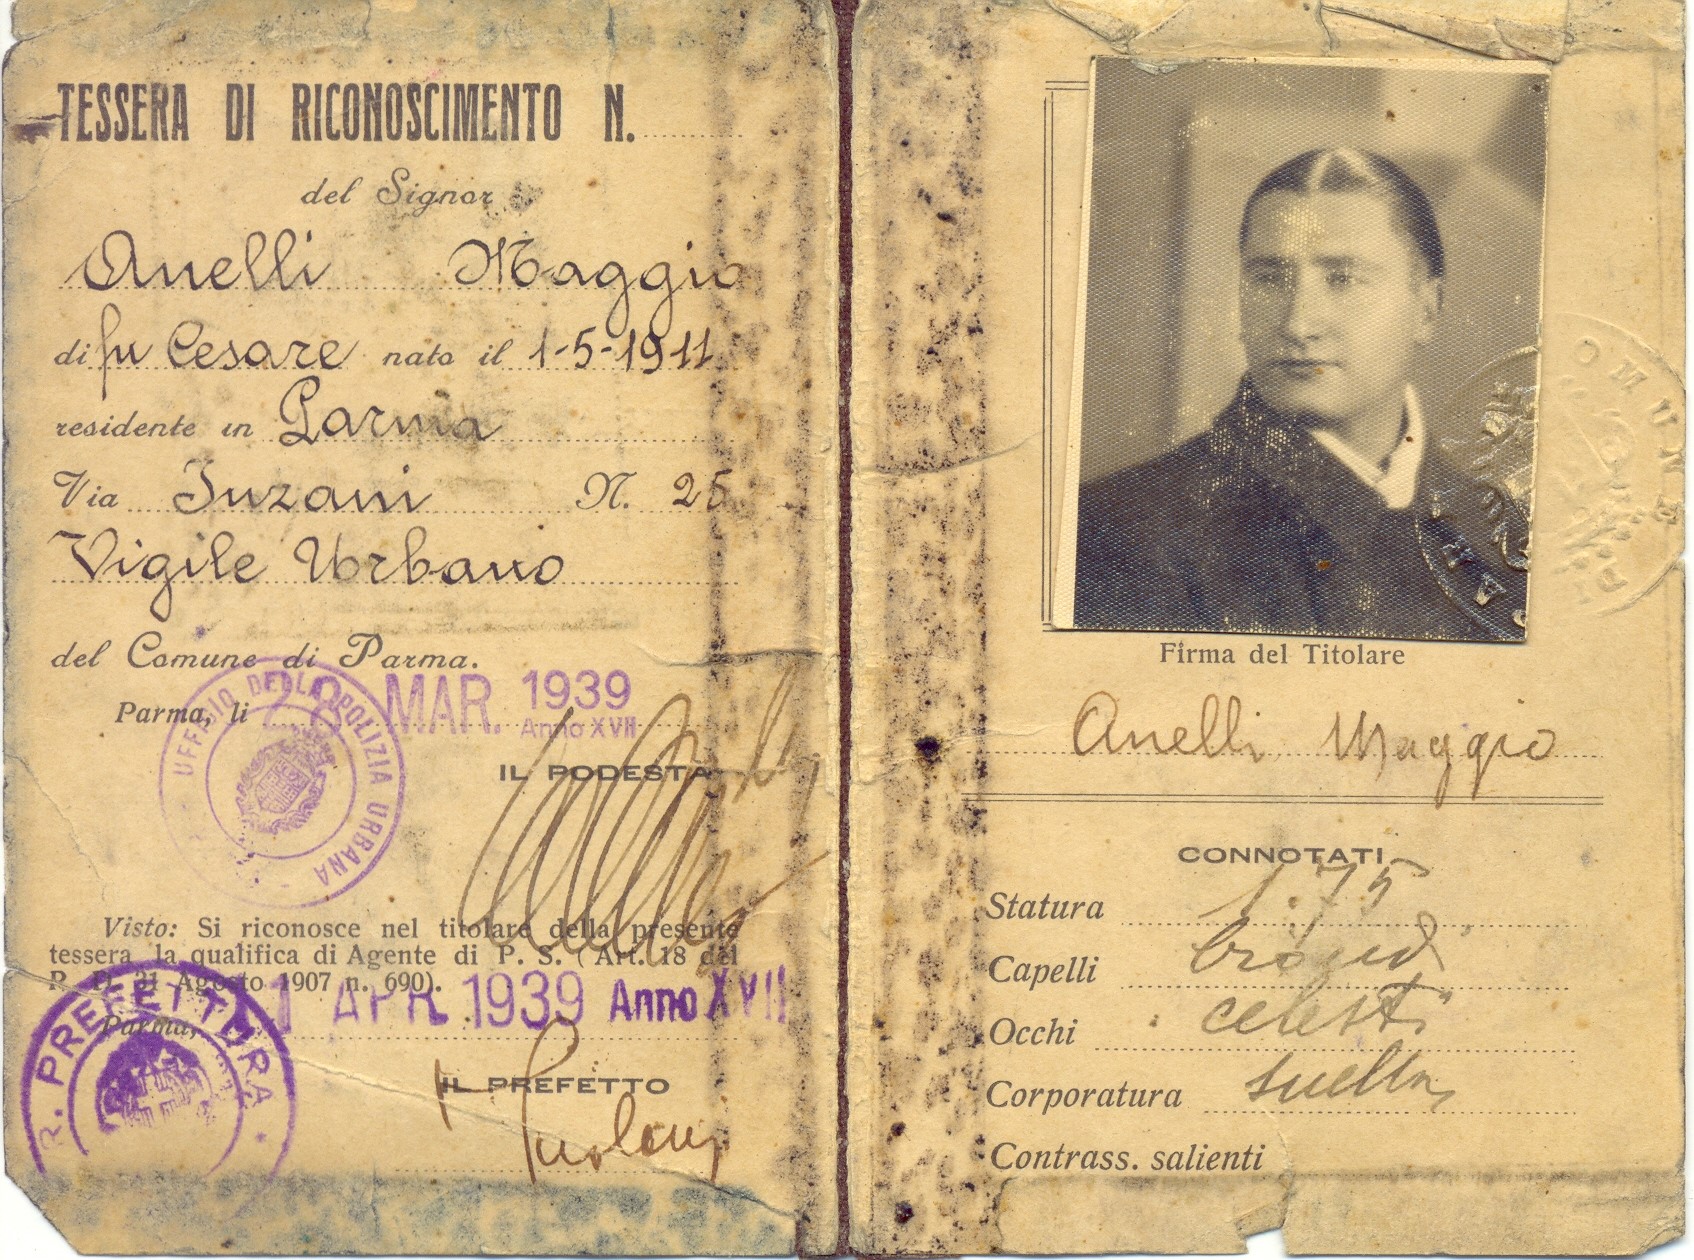 TESSERA DI RICONOSCIMENTO N.
del Signor
Anelli Maggio
di fu Cesare nato il 1-5-1911
residente in Parma
Via Inzani N. 25
Vigile Urbano
del Comune di Parma.
Parma, li 28 MAR. 1939
Anno XVII
UFFICIO DELLA POLIZIA URBANA
IL PODESTÀ
Visto: Si riconosce nel titolare della presente
tessera la qualifica di Agente di P. S. (Art. 18 del
R. D. 31 Agosto 1907 n. 690).
Parma, 1 APR 1939 Anno XVII
R. PREFETTURA
IL PREFETTO
COMUNE
Firma del Titolare
Anelli Maggio
CONNOTATI
Statura 1.75
Capelli biondi
Occhi celesti
Corporatura snella
Contrass. salienti